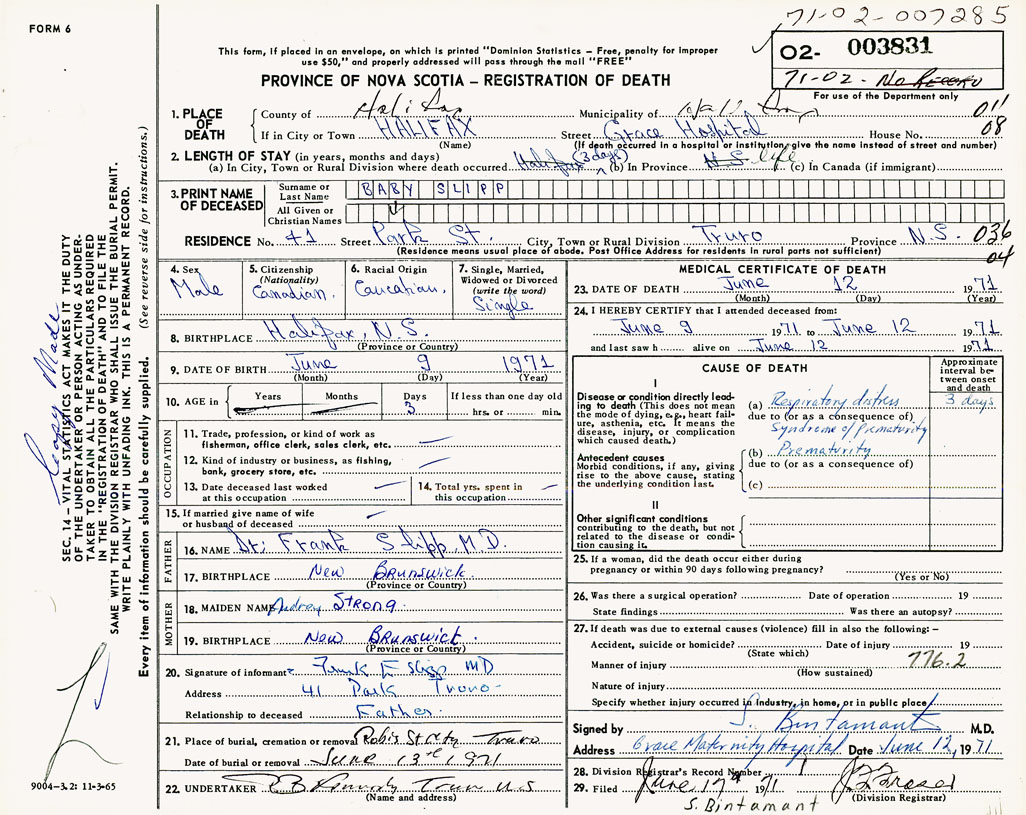 71-02-007285
FORM 6
02- 003831
71-02- No Record
For use of the Department only
This form, if placed in an envelope, on which is printed "Dominion Statistics – Free, penalty for improper
use $50," and properly addressed will pass through the mail "FREE"
PROVINCE OF NOVA SCOTIA – REGISTRATION OF DEATH
1. PLACE OF DEATH
County of Halifax Municipality of 011
If in City or Town HALIFAX Street Grace Hospital House No. 08
(Name) (If death occurred in a hospital or institution, give the name instead of street and number)
2. LENGTH OF STAY (in years, months and days)
(a) In City, Town or Rural Division where death occurred Halifax (3 days) (b) In Province N.S. life (c) In Canada (if immigrant)
3. PRINT NAME OF DECEASED
Surname or Last Name BABY SLIPP
All Given or Christian Names
RESIDENCE No. 41 Street Park St. City, Town or Rural Division Truro Province N.S. 036
(Residence means usual place of abode. Post Office Address for residents in rural parts not sufficient) 04
4. Sex Male
5. Citizenship (Nationality) Canadian.
6. Racial Origin Caucatian.
7. Single, Married, Widowed or Divorced (write the word) Single
8. BIRTHPLACE Halifax, N.S.
(Province or Country)
9. DATE OF BIRTH June 9 1971
(Month) (Day) (Year)
10. AGE in Years Months Days 3 If less than one day old
hrs. or min.
OCCUPATION
11. Trade, profession, or kind of work as
fisherman, office clerk, sales clerk, etc.
12. Kind of industry or business, as fishing,
bank, grocery store, etc.
13. Date deceased last worked
at this occupation
14. Total yrs. spent in
this occupation
15. If married give name of wife
or husband of deceased
FATHER
16. NAME Dr. Frank Slipp, M.D.
17. BIRTHPLACE New Brunswick.
(Province or Country)
MOTHER
18. MAIDEN NAME Audrey Strong.
19. BIRTHPLACE New Brunswick.
(Province or Country)
20. Signature of informant Frank E Slipp MD
Address 41 Park Truro
Relationship to deceased Father.
21. Place of burial, cremation or removal Robie Street Truro
Date of burial or removal June 13th 1971
22. UNDERTAKER Truro N.S
(Name and address)
MEDICAL CERTIFICATE OF DEATH
23. DATE OF DEATH June 12 1971
(Month) (Day) (Year)
24. I HEREBY CERTIFY that I attended deceased from:
June 9 1971 to June 12 1971
and last saw h alive on June 12 1971
CAUSE OF DEATH
Approximate interval between onset and death
I
Disease or condition directly leading to death (This does not mean the mode of dying, e.g., heart failure, asthenia, etc. It means the disease, injury, or complication which caused death.)
(a) Respiratory distress 3 days
due to (or as a consequence of)
Syndrome of Prematurity
Antecedent causes
Morbid conditions, if any, giving rise to the above cause, stating the underlying condition last.
(b) Prematurity
due to (or as a consequence of)
(c)
II
Other significant conditions
contributing to the death, but not related to the disease or condition causing it.
25. If a woman, did the death occur either during
pregnancy or within 90 days following pregnancy?
(Yes or No)
26. Was there a surgical operation? Date of operation 19
State findings Was there an autopsy?
27. If death was due to external causes (violence) fill in also the following: –
Accident, suicide or homicide? Date of injury 19
(State which) 776.2
Manner of injury
(How sustained)
Nature of injury
Specify whether injury occurred in industry, in home, or in public place
Signed by S. Bintamant M.D.
Address Grace Maternity Hospital Date June 12, 1971
28. Division Registrar's Record Number
29. Filed June 17th 1971
(Division Registrar)
S. Bintamant
9004–3.2: 11-3-65
Copy Made
SEC. 14 – VITAL STATISTICS ACT MAKES IT THE DUTY
OF THE UNDERTAKER OR PERSON ACTING AS UNDER-
TAKER TO OBTAIN ALL THE PARTICULARS REQUIRED
IN THE "REGISTRATION OF DEATH" AND TO FILE THE
SAME WITH THE DIVISION REGISTRAR WHO SHALL ISSUE THE BURIAL PERMIT.
WRITE PLAINLY WITH UNFADING INK. THIS IS A PERMANENT RECORD.
Every item of information should be carefully supplied. (See reverse side for instructions.)